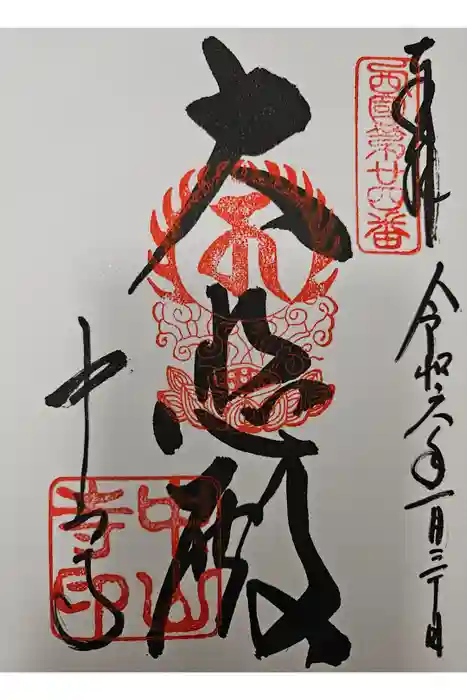 奉拝
西國第廿四番
令和六年一月三十日
大悲殿
中山寺
中山寺印